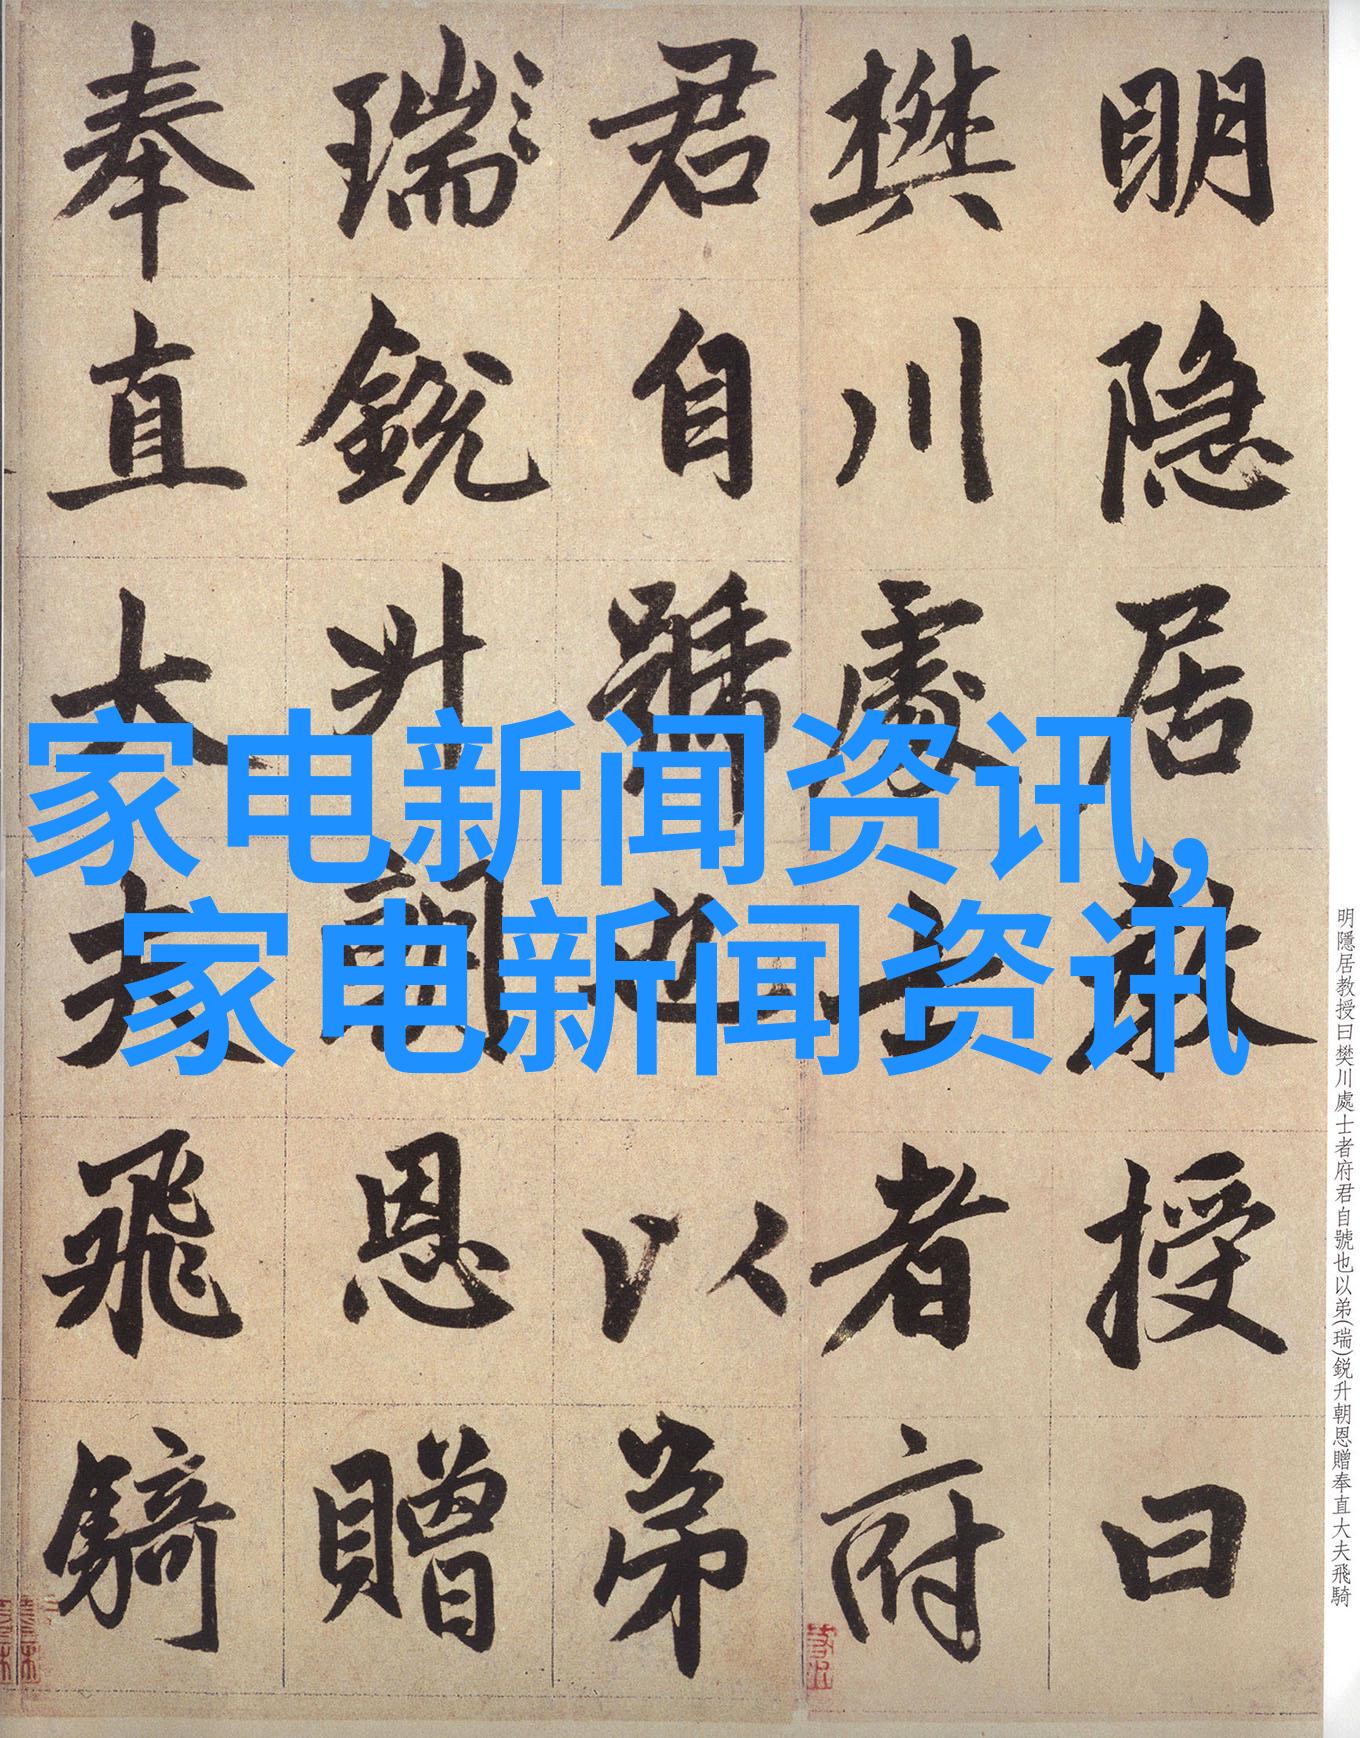 明隐居教授曰
樊川處士者府
君自號也以弟
瑞銳升朝恩贈
奉直大夫飛騎
家电新闻资讯,
家电新闻资讯
明隱居教授曰樊川處士者府君自號也以弟(瑞)銳升朝恩贈奉直大夫飛騎